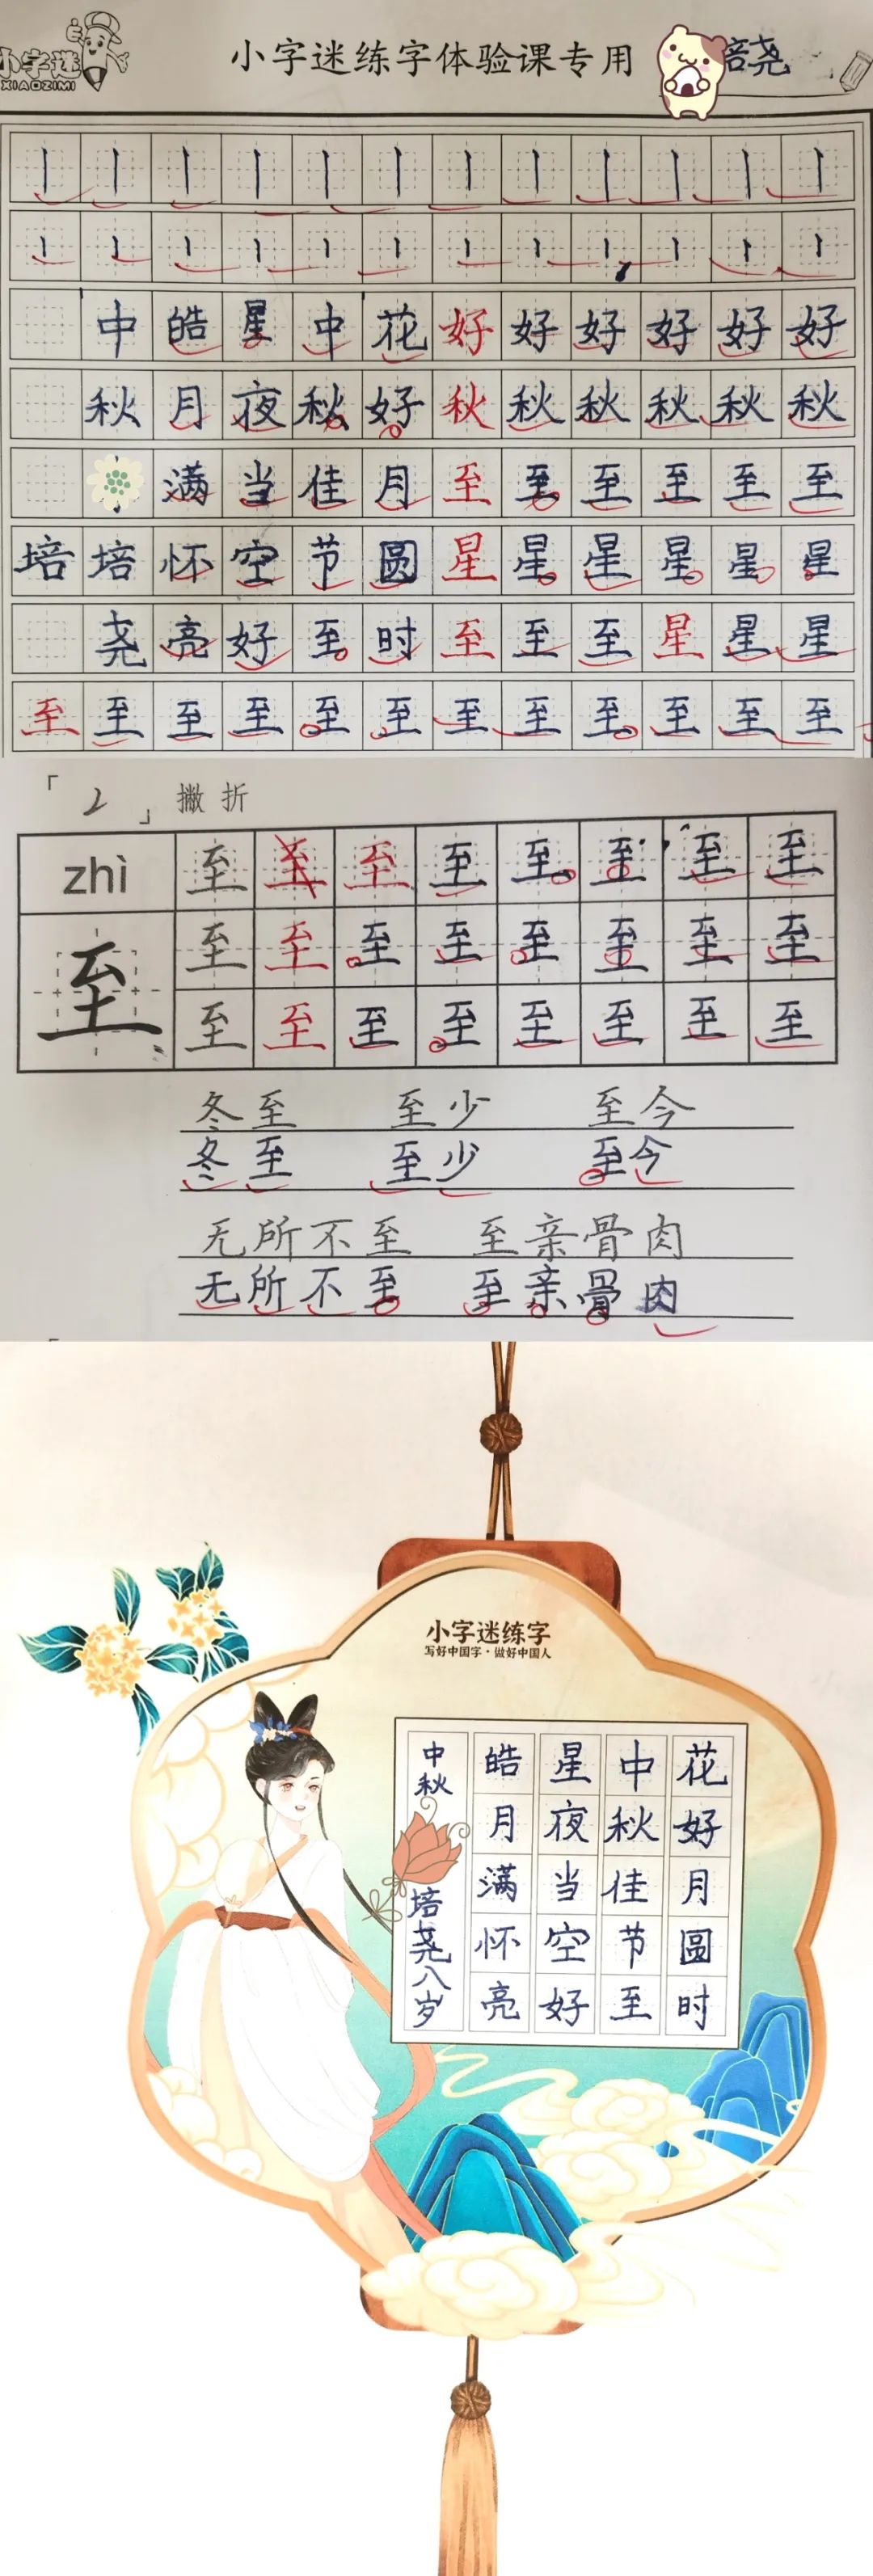 小字迷
XIAOZIMI
小字迷练字体验课专用
培尧
中皓星中花好好好好好好
秋月夜秋好秋秋秋秋秋秋
满当佳月至至至至至至
培培怀空节圆星星星星星星
尧亮好至时至至至星星星
至至至至至至至至至至至至
「2」撇折
zhì
至至至至至至至至
至
至至至至至至至至
至至至至至至至至
冬至 至少 至今
冬至 至少 至今
无所不至 至亲骨肉
无所不至 至亲骨肉
小字迷练字
写好中国字·做好中国人
花好月圆时
中秋佳节至
星夜当空好
皓月满怀亮
中秋
培尧八岁